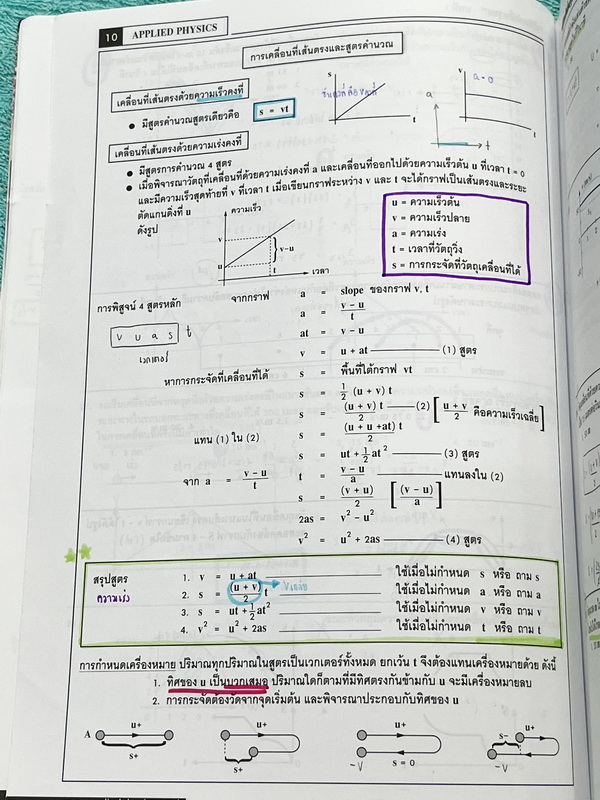 10 APPLIED PHYSICS
การเคลื่อนที่เส้นตรงและสูตรคำนวณ
เคลื่อนที่เส้นตรงด้วยความเร็วคงที่
• มีสูตรคำนวณสูตรเดียวคือ s = vt
s
t
a
t
v
a=0
t
เคลื่อนที่เส้นตรงด้วยความเร่งคงที่
• มีสูตรการคำนวณ 4 สูตร
• เมื่อพิจารณาวัตถุที่เคลื่อนที่ด้วยความเร่งคงที่ a และเคลื่อนที่ออกไปด้วยความเร็วต้น u ที่เวลา t = 0
และมีความเร็วสุดท้ายที่ v ที่เวลา t เมื่อเขียนกราฟระหว่าง v และ t จะได้กราฟเป็นเส้นตรงและระยะ
ตัดแกนดิ่งที่ u
ดังรูป
ความเร็ว
v
v–u
u
t
เวลา
u = ความเร็วต้น
v = ความเร็วปลาย
a = ความเร่ง
t = เวลาที่วัตถุวิ่ง
s = การกระจัดที่วัตถุเคลื่อนที่ได้
การพิสูจน์ 4 สูตรหลัก
v u a s t
เวกเตอร์
จากกราฟ a = slope ของกราฟ v, t
a = (v – u)/t
at = v – u
v = u + at (1) สูตร
หาการกระจัดที่เคลื่อนที่ได้ s = พื้นที่ใต้กราฟ vt
s = 1/2 (u + v) t
s = (u + v)/2 t (2) [(u + v)/2 คือความเร็วเฉลี่ย]
แทน (1) ใน (2) s = (u + u + at) t/2
s = ut + 1/2 at² (3) สูตร
จาก a = (v – u)/t t = (v – u)/a แทนลงใน (2)
s = (v + u)/2 [(v – u)/a]
2as = v² – u²
v² = u² + 2as (4) สูตร
สรุปสูตร
ความเร่ง
1. v = u + at ใช้เมื่อไม่กำหนด s หรือ ถาม s
2. s = (u + v)/2 t Vเฉลี่ย ใช้เมื่อไม่กำหนด a หรือ ถาม a
3. s = ut + 1/2 at² ใช้เมื่อไม่กำหนด v หรือ ถาม v
4. v² = u² + 2as ใช้เมื่อไม่กำหนด t หรือ ถาม t
การกำหนดเครื่องหมาย ปริมาณทุกปริมาณในสูตรเป็นเวกเตอร์ทั้งหมด ยกเว้น t จึงต้องแทนเครื่องหมายด้วย ดังนี้
1. ทิศของ u เป็นบวกเสมอ ปริมาณใดก็ตามที่มีทิศตรงกันข้ามกับ u จะมีเครื่องหมายลบ
2. การกระจัดต้องวัดจากจุดเริ่มต้น และพิจารณาประกอบกับทิศของ u
A u+ s+
u+ s+
u+ s = 0 -V
u+ s– -V